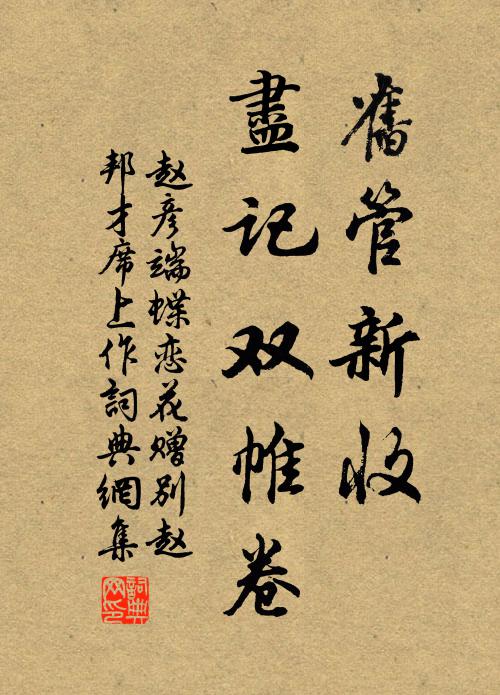 舊管新收
盡记双帷卷
赵彦端蝶恋花赠别赵
邦才席上作詞典網集
詞典网印